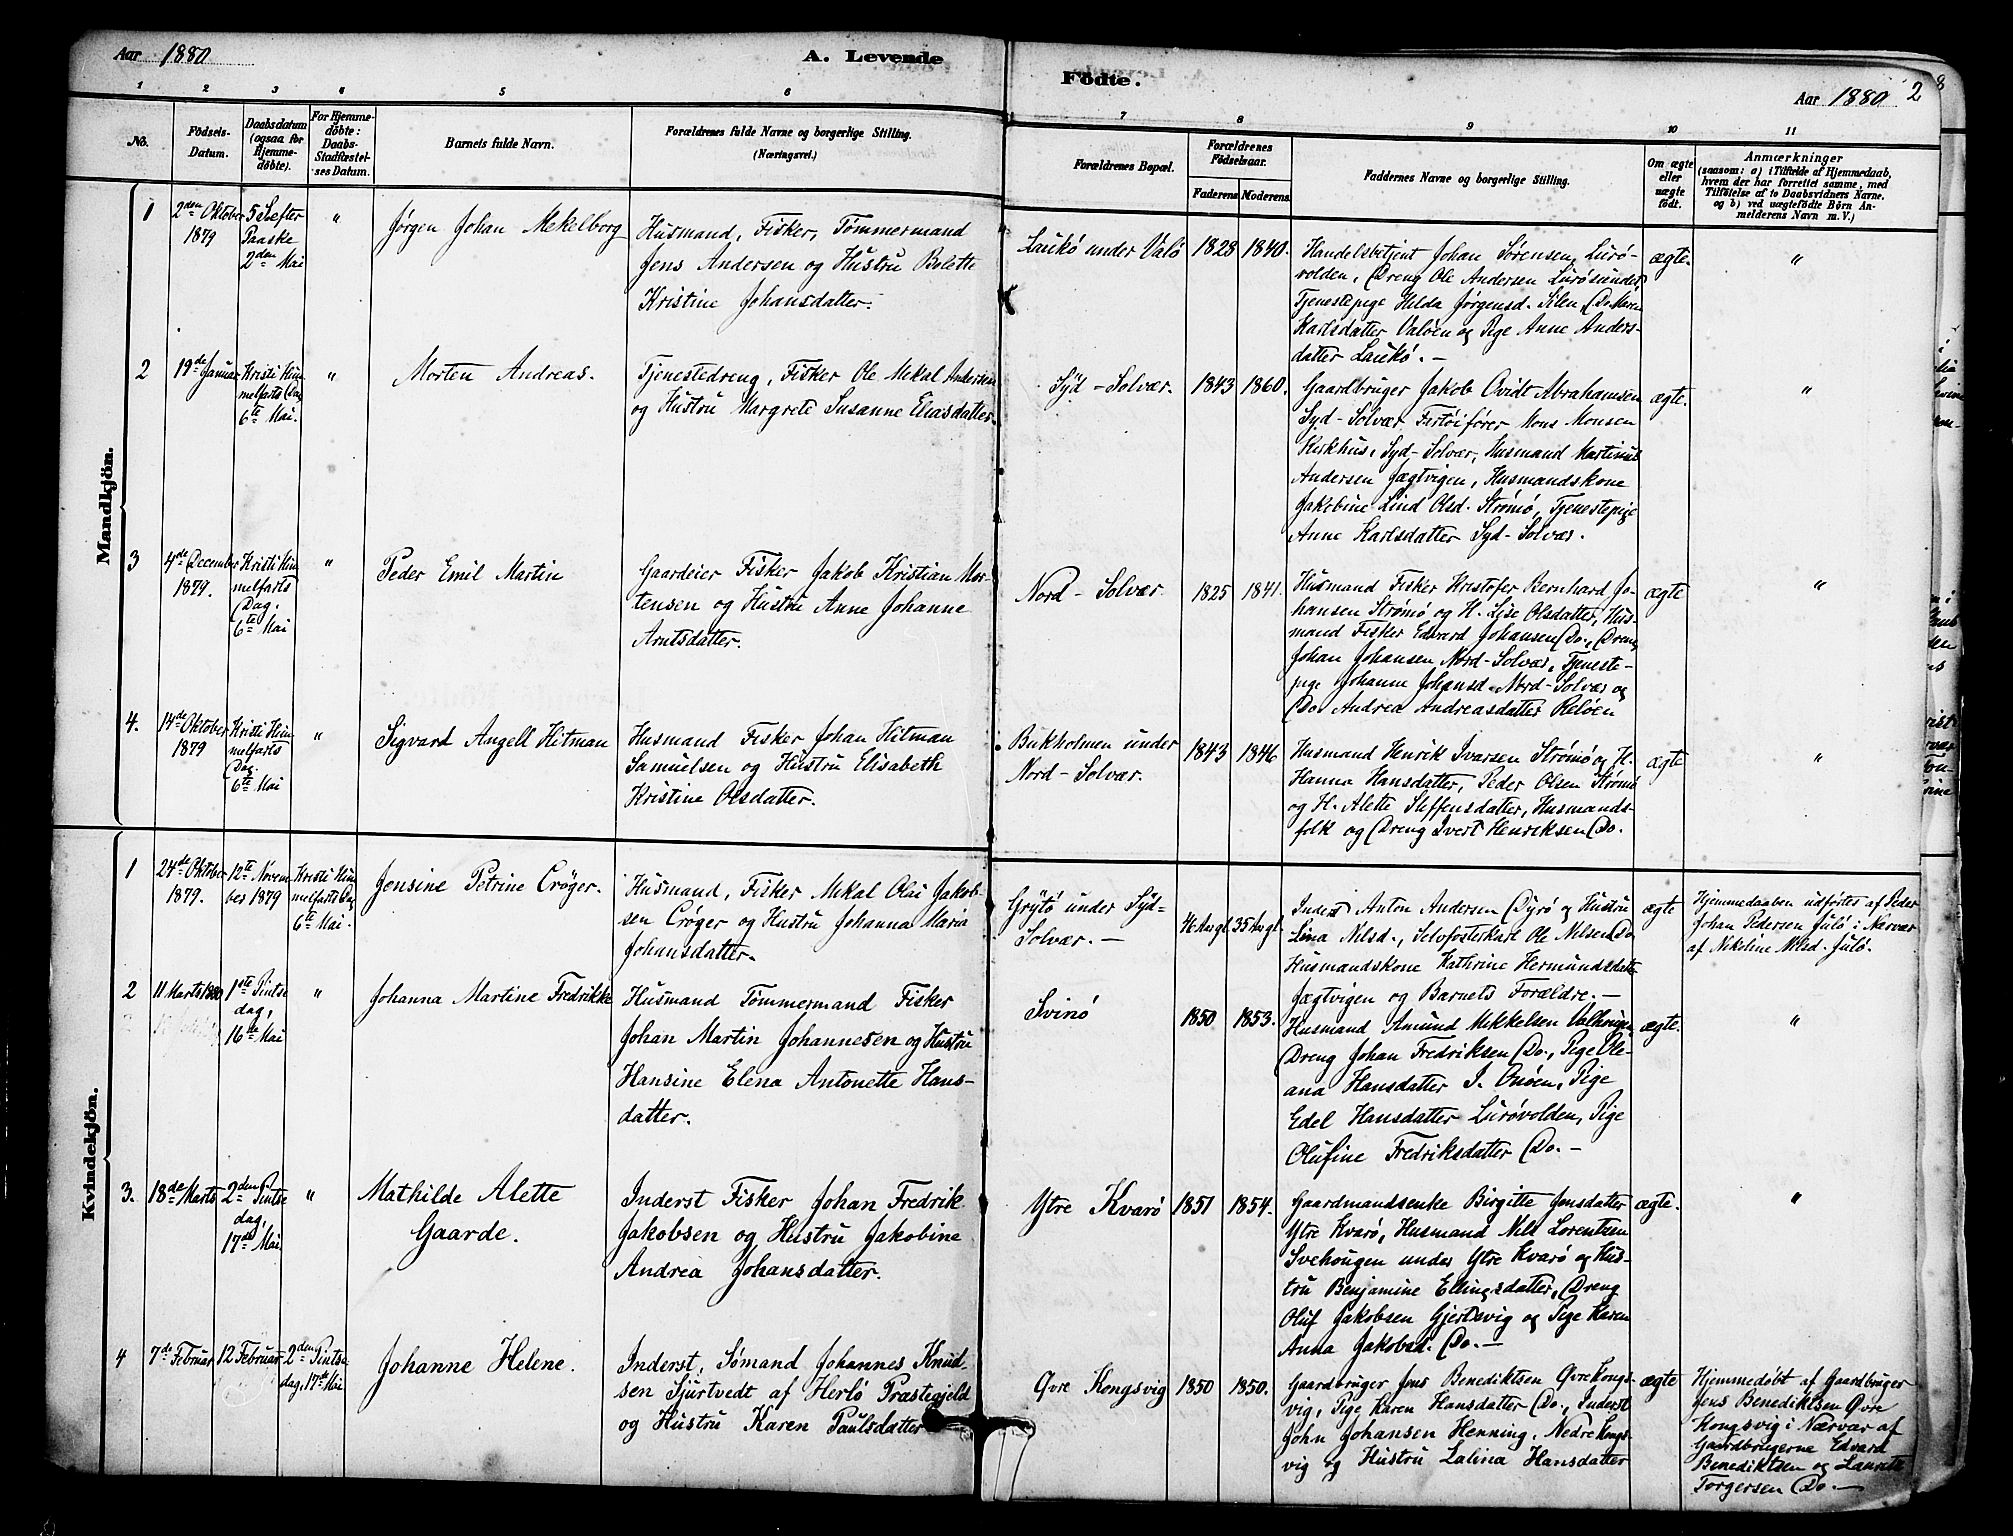 Aar 1880
A. Levende
Födte.
Aar 1880 2
1 2 3 4 5 6 7 8 9 10 11
No.
Födsels-
Datum.
Daabsdatum
(ogsaa for
Hjemme-
döbte).
For Hjemme-
döbte:
Daabs-
Stadfæstel-
ses Datum.
Barnets fulde Navn.
Forældrenes fulde Navne og borgerlige Stilling.
(Næringsvei.)
Forældrenes Bopæl.
Forældrenes
Födselsaar.
Faderens Moderens
Faddernes Navne og borgerlige Stilling.
Om ægte
eller
uægte
födt.
Anmærkninger
(saasom: a) i Tilfælde af Hjemmedaab,
hvem der har forrettet samme, med
Tilföielse af to Daabsvidners Navne.
og b) ved uægtefödte Börn An-
melderens Navn m. V.)
Mandkjön.
1
2den Oktober
1879
5 S. efter
Paaske
2den Mai
"
Jørgen Johan Mekelborg
Husmand, Fisker, Tömmermand
Jens Andersen og Hustru Bolette
Kristine Johansdatter.
Laukö under Valö
1828
1840.
Handelsbetjent Johan Sørensen, Lurö-
volden, Dreng Ole Andersen Lurösundet,
Tjenestepige Helda Jørgensd. Silen Do Maren
Karlsdatter Valöen og Pige Anne Anders-
datter Laukö. -
ægte.
"
2
19de Januar
Kristi Him
melfarts Dag
6te Mai.
"
Morten Andreas.
Tjenestedreng, Fisker Ole Mekal Andersen
og Hustru Margrete Susanne Eliasdatter.
Syd-Solvær.
1843
1860.
Gaardbruger Jakob Ovidt Abrahamsen
Syd-Solvær Fartöiförer Mons Monsen
Kirkhus, Syd-Solvær, Husmand Martinus
Andersen Jægtvigen, Husmandskone
Jakobine Lind Olsd. Strömö, Tjenestepige
Anne Karlsdatter Syd-Solvær.
ægte.
"
3
4de December
1879.
Kristi Him
melfarts
Dag.
6te Mai
"
Peder Emil Martin
Gaardeier Fisker Jakob Kristian Mor-
tensen og Hustru Anne Johanne
Arntsdatter.
Nord-Solvær.
1825
1841.
Husmand Fisker Kristofer Bernhard Jo-
hansen Strömö og H. Lise Olsdatter, Hus-
mand Fisker Edvard Johansen Do., Dreng
Johan Johansen Nord-Solvær, Tjeneste-
pige Johanne Johansd. Nord-Solvær og
Do. Andrea Andreasdatter Relöen
ægte
"
4.
14de Oktober
1879
Kristi Him
melfarts
Dag.
6te Mai
"
Sigvard Angell Hitman
Husmand Fisker Johan Hitman
Samuelsen og Hustru Elisabeth
Kristine Olsdatter.
Bukholmen under
Nord-Solvær.
1843
1846
Husmand Henrik Ivarsen Strömö og H.
Hanna Hansdatter, Peder Olsen Strömö
og H. Alette Steffensdatter, Husmands-
folk og Dreng Ivert Henriksen Do.
ægte
"
Kvindekjön.
1
24de Oktober
1879.
12te Novem
ber 1879
Kristi Him
melfarts Dag
6te Mai.
Jensine Petrine Cröger.
Husmand, Fisker Mekal Olai Jakob-
sen Cröger og Hustru Johanna Maria
Johansdatter.
Grytö under Syd-
Solvær. -
46 Aar gl.
35 Aar gl.
Inderst Anton Andersen Dyrö og Hustru
Lina Nilsd., Selvfosterkarl Ole Nilsen Do
Husmandskone Kathrine Hermundsdatter
Jægtvigen og Barnets Forældre. -
ægte
Hjemmedaaben udförtes af Peder
Johan Pedersen Julö i Nærvær
af Nikoline Nilsd. Julö.
2
11 Marts 1880
1ste Pintse
dag,
16de Mai
"
Johanna Martine Fredrikke
Husmand Tömmermand Fisker
Johan Martin Johannesen og Hustru
Hansine Elena Antonette Hans-
datter.
Svinö
1850
1853.
Husmand Amund Mikkelsen Valhaugen,
Dreng Johan Fredriksen Do., Pige Ole-
ana Hansdatter I. Onöen, Pige
Edel Hansdatter Lurövolden, Pige
Olufine Fredriksdatter Do. -
ægte.
"
3.
18de Marts
2den Pintse
dag,
17de Mai
"
Mathilde Alette
Gaarde.
Inderst Fisker Johan Fredrik
Jakobsen og Hustru Jakobine
Andrea Johansdatter.
Ytre Kvarö
1851
1854.
Gaardmandsenke Birgitte Jensdatter
Ytre Kvarö, Husmand Nils Lorentsen
Svehougen under Ytre Kvarö og Hus-
tru Benjamine Ellingsdatter, Dreng
Oluf Jakobsen Gjertsvig og Pige Karen
Anna Jakobsd. Do. -
ægte.
"
4
7de Februar
12 Februar
2den Pintse
dag, 17de Mai
Johanne Helene.
Inderst, Sömand Johannes Knud-
sen Sjurtvedt af Herlö Præstegjeld
og Hustru Karen Paulsdatter
Øvre Kongsvig
1850
1850.
Gaardbruger Jens Benediktsen Øvre Kongs-
vig, Pige Karen Hansdatter Do., Inderst
John Johansen Henning, Nedre Kongs-
vig og Hustru Lalina Hansdatter
ægte
Hjemmedöbt af Gaardbruger
Jens Benediktsen Øvre
Kongsvig i Nærvær af
Gaardbrugerne Edvard
Benediktsen og Laurits
Torgersen Do. -